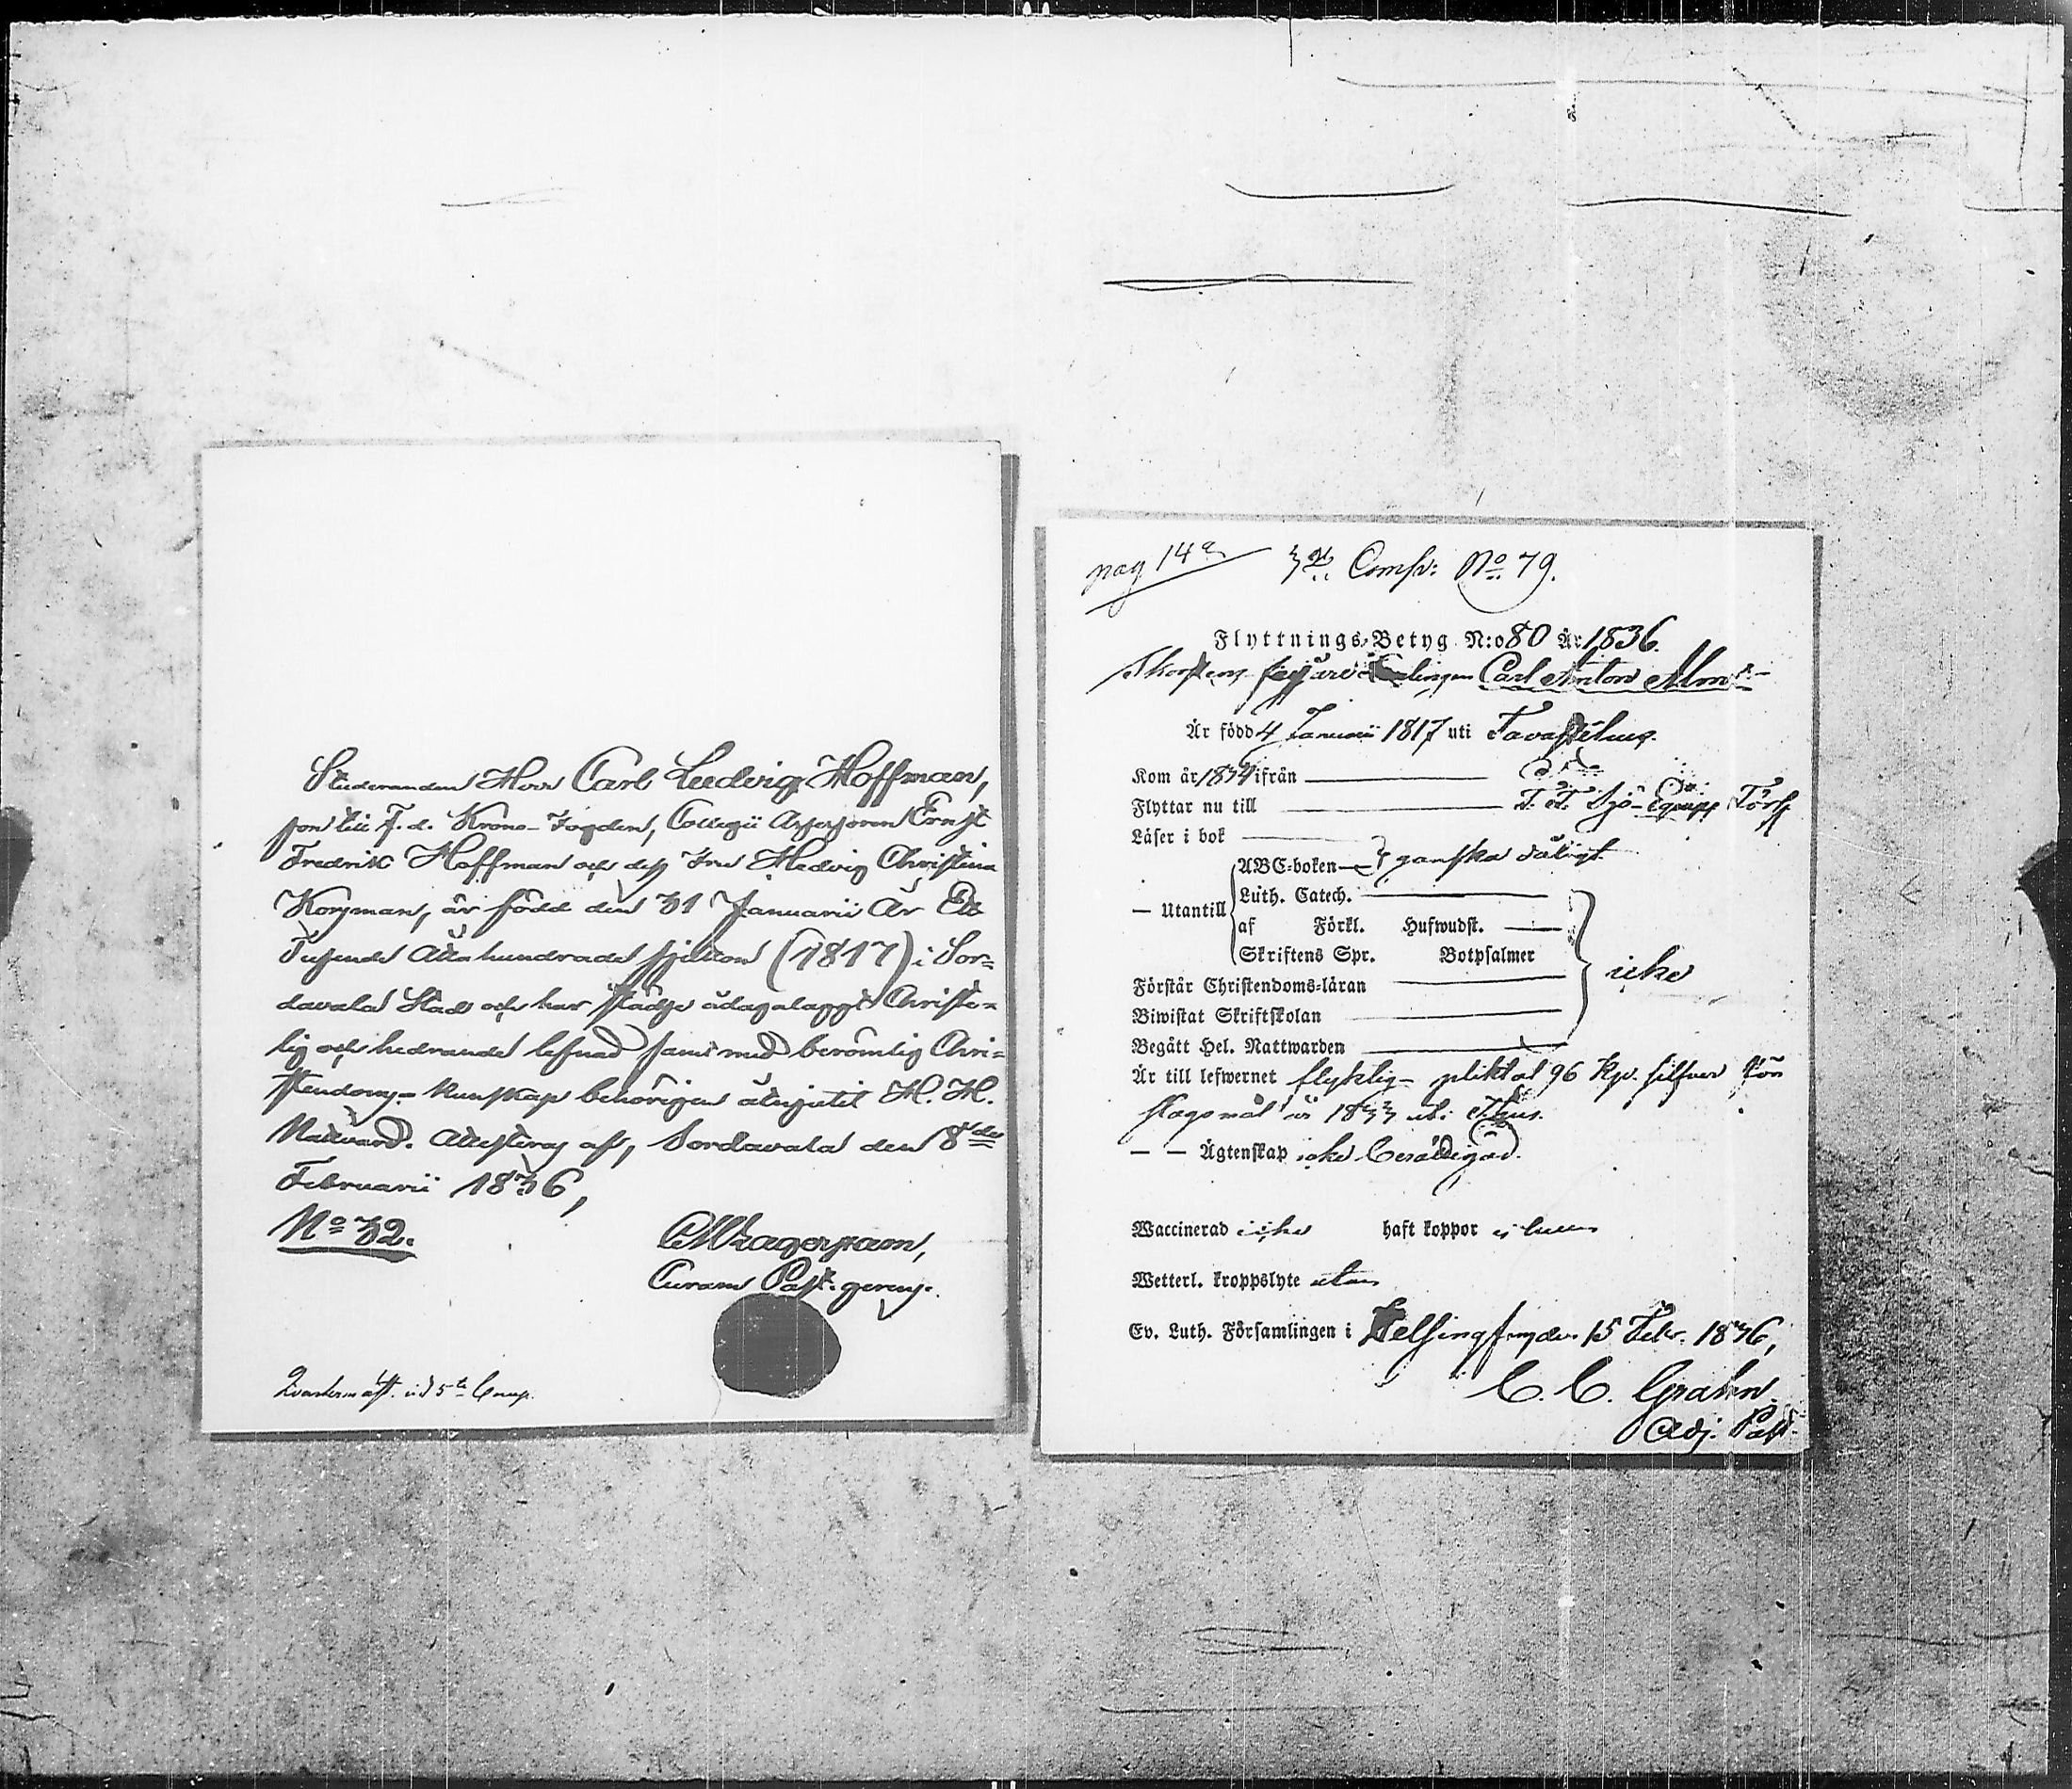 Studeranden Herr Carl Ludvig Hoffman,
son till f. d. Krono-Fogden, Collegii Assessoren Ernst
Fredrik Hoffman och dess Fru Hedvig Christina
Korsman, är född den 31 Januarii År Ett
Tusende Åttahundrade sjutton (1817) i Sor=
davala Stad och har städse ådagalaggt Christe=
lig och hedrande lefnad samt med berömlig Chri=
stendoms-kunskap behörigen åtnjutit H. H.
Nattvard. Attesteras af, Sordavala den 8de
Februarii 1836,
No 32.
Curam Past. gerens.
Qvartermäst. vid 5te Comp.
pag 142
3de Comp: No 79.
Flyttnings-Betyg N:o 80 År 1836.
Skorstens fejare Carl Anton Alm
Är född 4 Januarii 1817 uti Tavastehus.
Kom år 1834 ifrån
Flyttar nu till Sjö-Equipp
Läser i bok
ABC-boken ganska dåligt
— Utantill Luth. Catech.
af Förkl. Hufwudst.
Skriftens Spr. Botpsalmer
Förstår Christendoms-läran icke
Biwistat Skriftskolan
Begått Hel. Nattwarden
Är till lefwernet pliktat 96 kop. silfver för
slagsmål år 1833 uti T:hus.
— — Ägtenskap icke berättigad.
Waccinerad icke haft koppor
Wetterl. kroppslyte utan
Ev. Luth. Församlingen i Helsingfors den 15 Febr. 1836,
C. C. Grahn
Adj. Past.